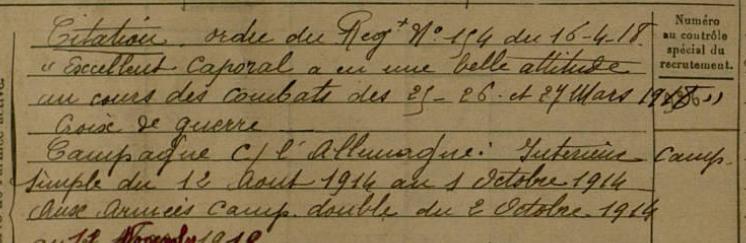 Citation ordre du Regt No 154 du 16-4-18.
"Excellent Caporal a eu une belle attitude
au cours des combats des 25-26 et 27 Mars 1918"
Croix de guerre
Campagne c/ l'Allemagne: Intérieur
Simple du 12 Aout 1914 au 1 Octobre 1914
Aux Armées camp. double du 2 Octobre 1914
au 12 Novemb 1918
Numéro
au contrôle
spécial du
recrutement.
Camp.